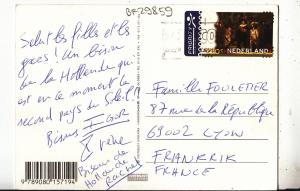 BF29859
Salut les filles et les
gars ! Un bisou
de la Hollande qui
est en ce moment le
second pays du Soleil !
Bisous IGOR
Irène
Bisous de
Hollande
Rachel
PRIORITY
NEDERLAND
Famille FOULETIER
87 rue de la République
69002 LYON
FRANKRIK
FRANCE
9789080157194